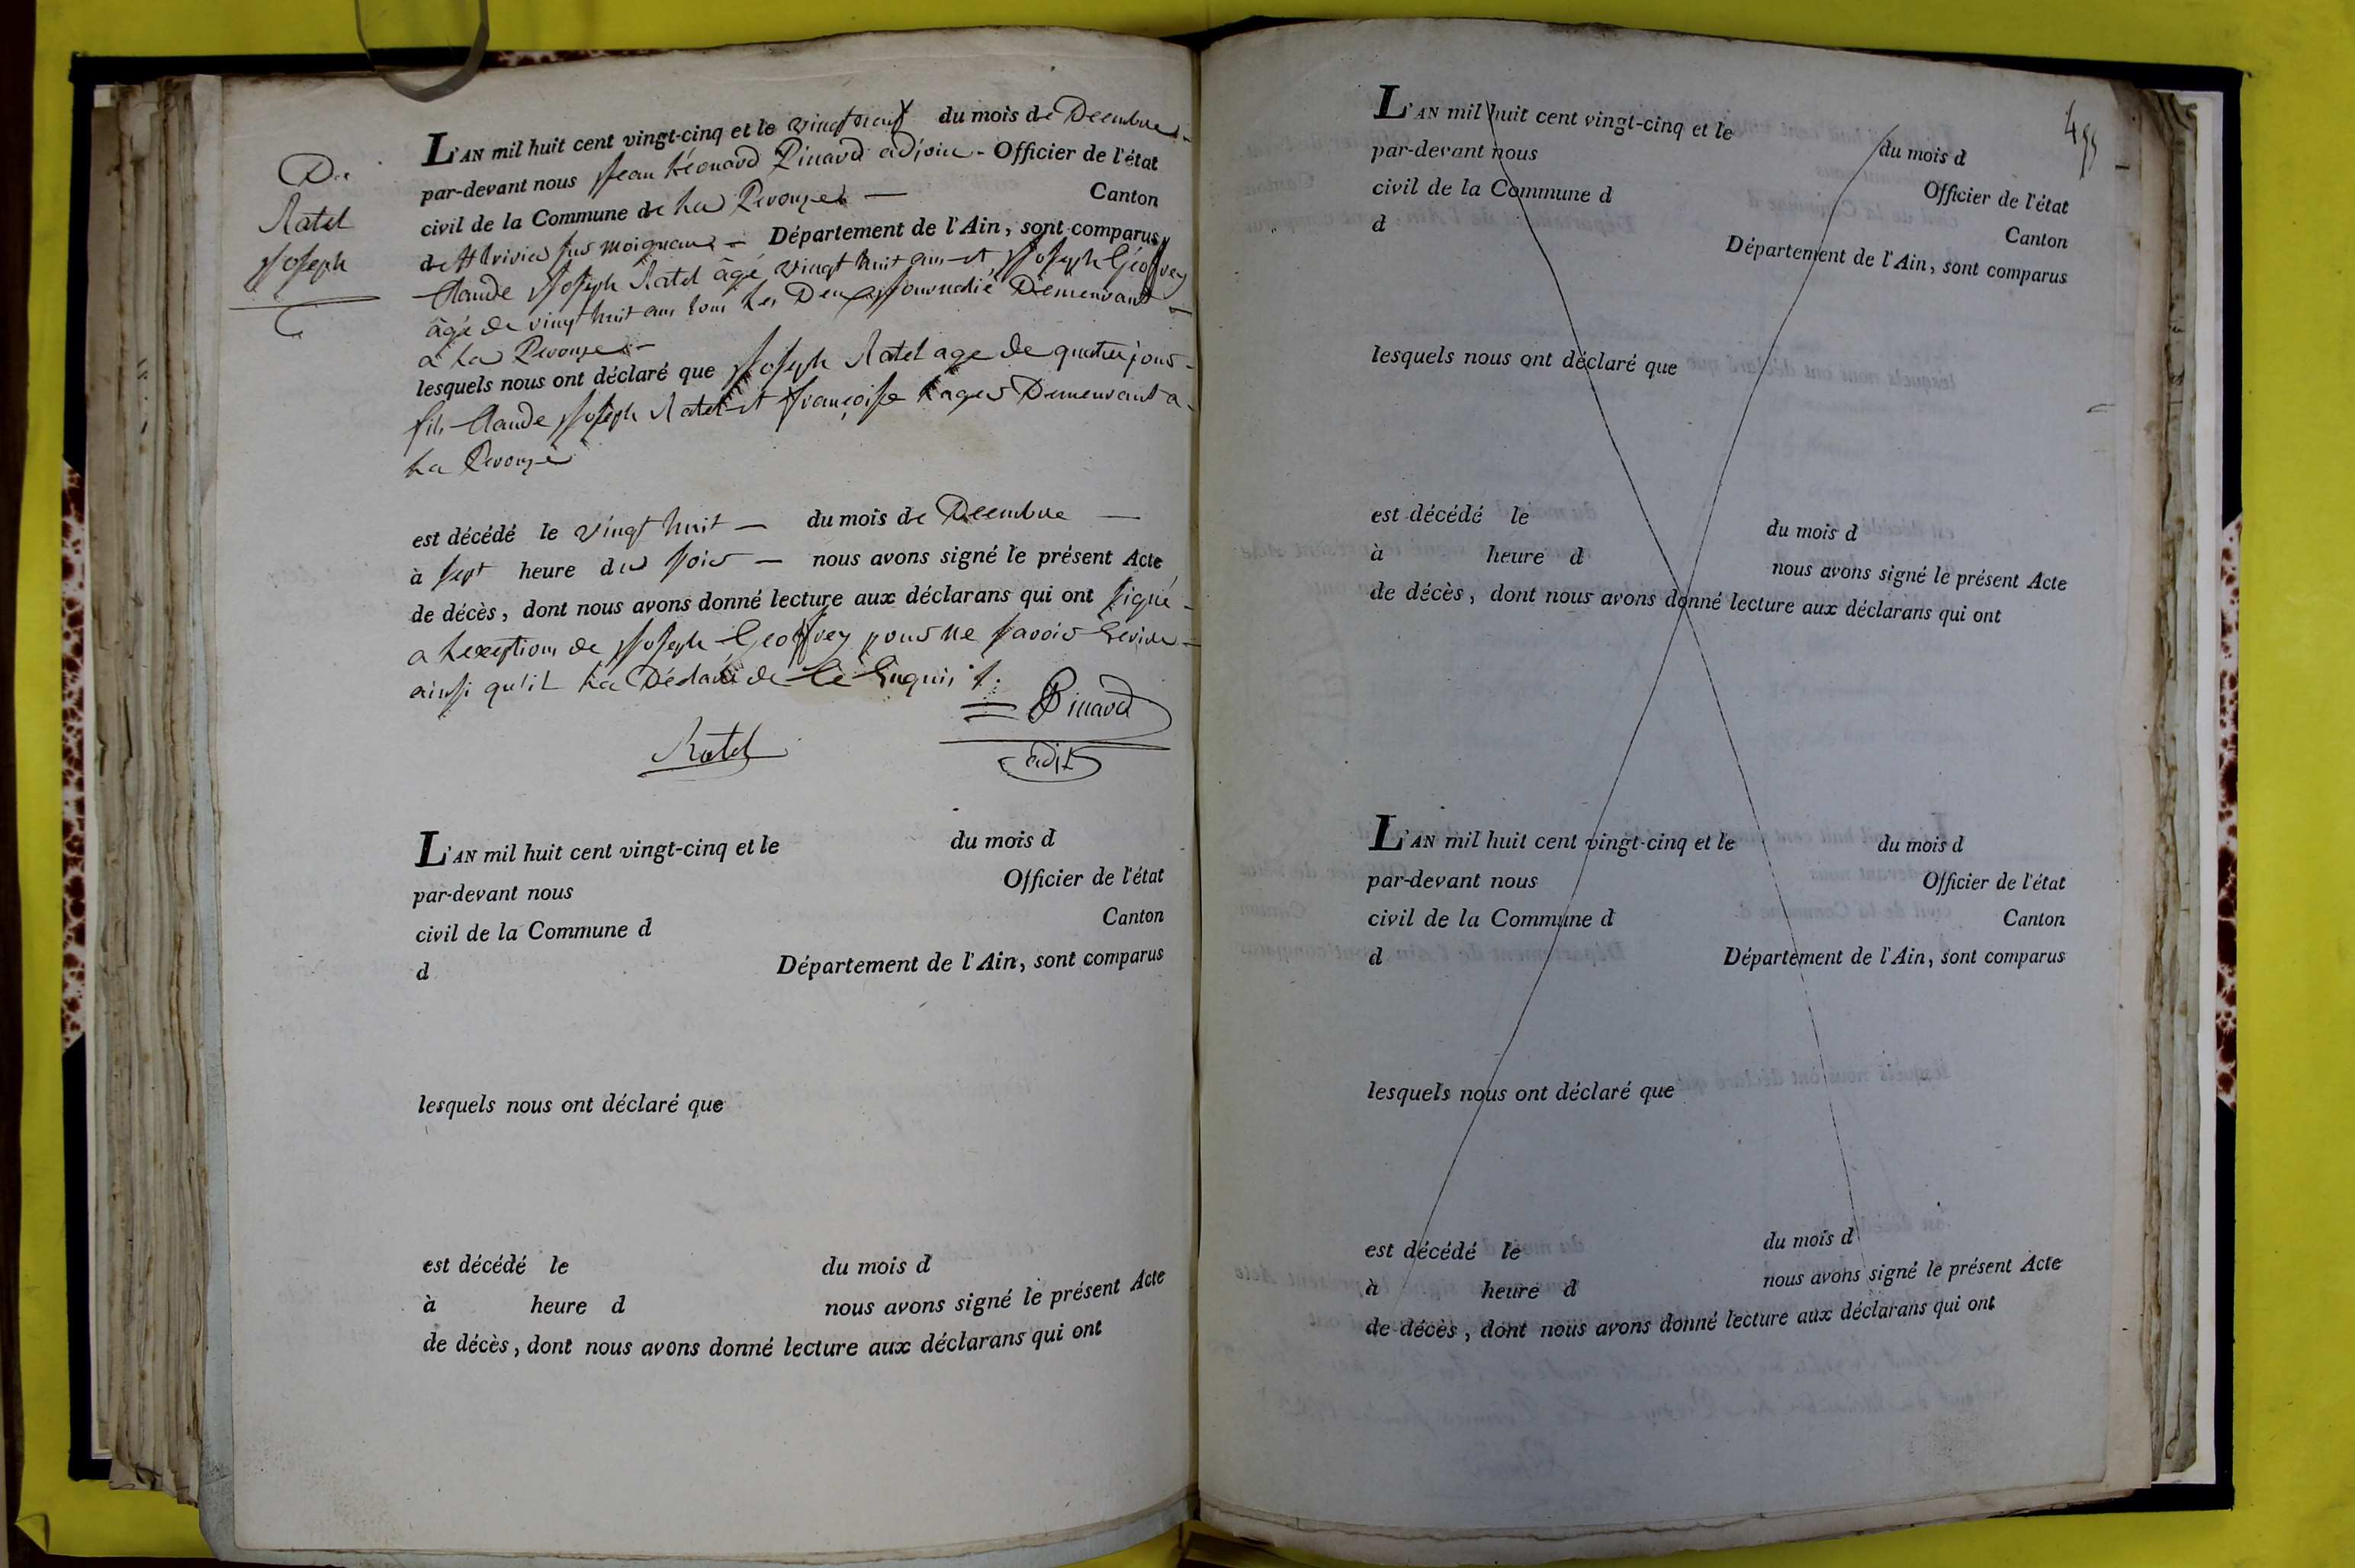 De
Ratel
Joseph
L'AN mil huit cent vingt-cinq et le vingt neuf du mois de Decembre
par-devant nous Jean Léonard Pinard adjoin - Officier de l'état
civil de la Commune de La Peronze — Canton
de Département de l'Ain, sont comparus
Claude Joseph Ratel âgé vingt huit ans et Joseph Géoffrey
âgé de vingt huit ans tous les Deux Demeurant
a La Peronze
lesquels nous ont déclaré que Joseph Ratel age de quatre jours
fils Claude Joseph Ratel et françoise Demeurant a
La Peronze
est décédé le vingt huit — du mois de Decembre —
à sept heure du soir — nous avons signé le présent Acte
de décès, dont nous avons donné lecture aux déclarans qui ont signé
a Lexeption de Joseph Geoffrey pour ne savoir Ecrire
ainsi qu'il La Déclaré de Ce Enquis ./.
Pinard
Ratel
adjt
L'AN mil huit cent vingt-cinq et le du mois d
par-devant nous Officier de l'état
civil de la Commune d Canton
d Département de l'Ain, sont comparus
lesquels nous ont déclaré que
est décédé le du mois d
à heure d nous avons signé le présent Acte
de décès, dont nous avons donné lecture aux déclarans qui ont
L'AN mil huit cent vingt-cinq et le du mois d
par-devant nous Officier de l'état
civil de la Commune d Canton
d Département de l'Ain, sont comparus
lesquels nous ont déclaré que
est décédé le du mois d
à heure d nous avons signé le présent Acte
de décès, dont nous avons donné lecture aux déclarans qui ont
L'AN mil huit cent vingt-cinq et le du mois d
par-devant nous Officier de l'état
civil de la Commune d Canton
d Département de l'Ain, sont comparus
lesquels nous ont déclaré que
est décédé le du mois d
à heure d nous avons signé le présent Acte
de décès, dont nous avons donné lecture aux déclarans qui ont